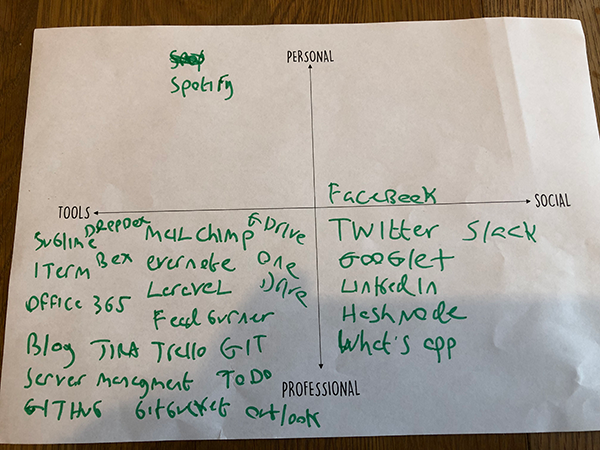 PERSONAL
Spotify
FaceBook
TOOLS
SOCIAL
SuBlime DropBox MailChimp G Drive
ITerm Box evernote One Drive
Office 365 Laravel
Feed Burner
Blog JIRA Trello GIT
Server Managment ToDo
GITHUB GitBucket outlook
TWitter Slack
GOOGle+
LinkedIn
HashNode
What's app
PROFESSIONAL